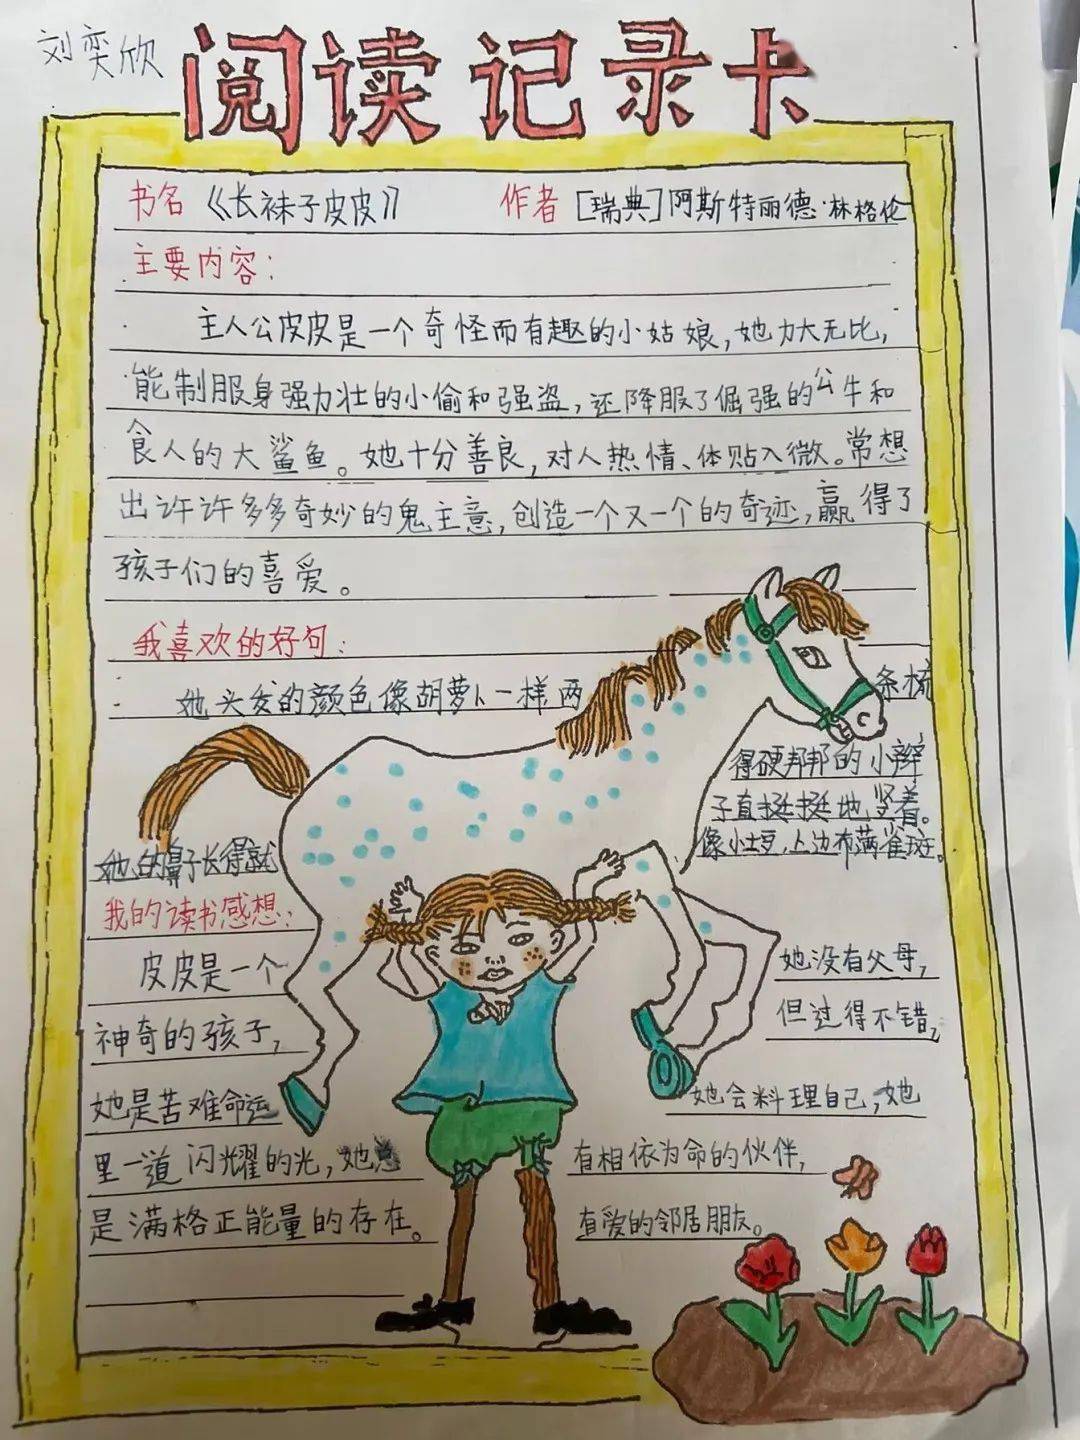 刘奕欣
阅读记录卡
书名《长袜子皮皮》 作者 [瑞典]阿斯特丽德·林格伦
主要内容:
主人公皮皮是一个奇怪而有趣的小姑娘,她力大无比,
能制服身强力壮的小偷和强盗,还降服了倔强的公牛和
食人的大鲨鱼。她十分善良,对人热情、体贴入微。常想
出许许多多奇妙的鬼主意,创造一个又一个的奇迹,赢得了
孩子们的喜爱。
我喜欢的好句:
她头发的颜色像胡萝卜一样两条梳
得硬邦邦的小辫
子直挺挺地竖着。
她的鼻子长得就像小土豆,上边布满雀斑。
我的读书感想:
皮皮是一个
神奇的孩子,
她是苦难命运
里一道闪耀的光,她总
是满格正能量的存在。
她没有父母,
但过得不错,
她会料理自己,她
有相依为命的伙伴,
有爱的邻居朋友。